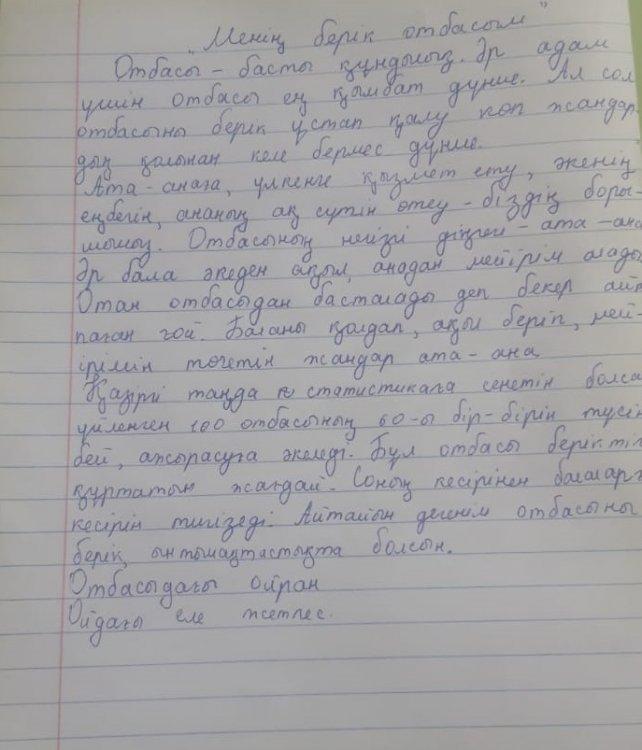 "Менің берік отбасым"
Отбасы – басты құндылық. Әр адам
үшін отбасы ең қымбат дүние. Ал сол
отбасыны берік ұстап қалу көп жандар-
дың қолынан келе бермес дүние.
Ата-анаға, үлкенге қызмет ету, әкенің
еңбегін, ананың ақ сүтін өтеу – біздің боры-
шымыз. Отбасының негізгі діңгегі – ата-ана
Әр бала әкеден ақыл, анадан мейірім алады
Отан отбасыдан басталады деп бекер айт
паған ғой. Баланы қолдап, ақыл беріп, мей-
ірімін төгетін жандар ата-ана
Қазіргі таңда статистикаға сенетін болса
үйленген 100 отбасының 60-ы бір-бірін түсін
бей, ажырасуға әкеледі. Бұл отбасы беріктіг
құртатын жағдай. Соның кесірінен балаларғ
кесірін тигізеді. Айтайын дегенім отбасыны
берік, ынтымақтастықта болсын.
Отбасыдағы ойран
Ойдағы еле жетпес.